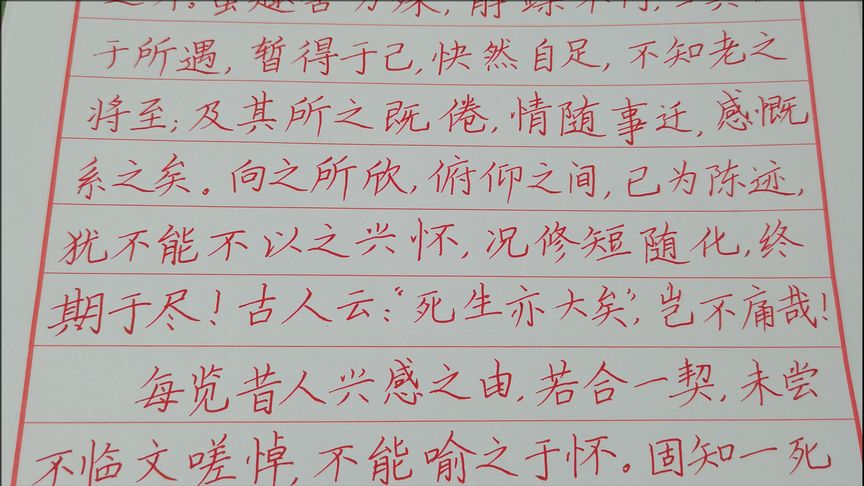 虽趣舍万殊，静躁不同，
于所遇，暂得于己，快然自足，不知老之
将至；及其所之既倦，情随事迁，感慨
系之矣。向之所欣，俯仰之间，已为陈迹，
犹不能不以之兴怀，况修短随化，终
期于尽！古人云：“死生亦大矣”，岂不痛哉！
每览昔人兴感之由，若合一契，未尝
不临文嗟悼，不能喻之于怀。固知一死